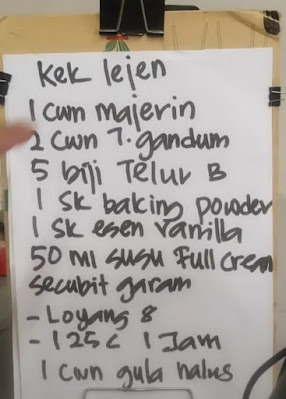 Kek lejen
1 cwn majerin
2 cwn T. gandum
5 biji Telur B
1 sk baking powder
1 sk esen vanilla
50 ml susu Full cream
secubit garam
- Loyang 8
- 125c 1 Jam
1 cwn gula halus